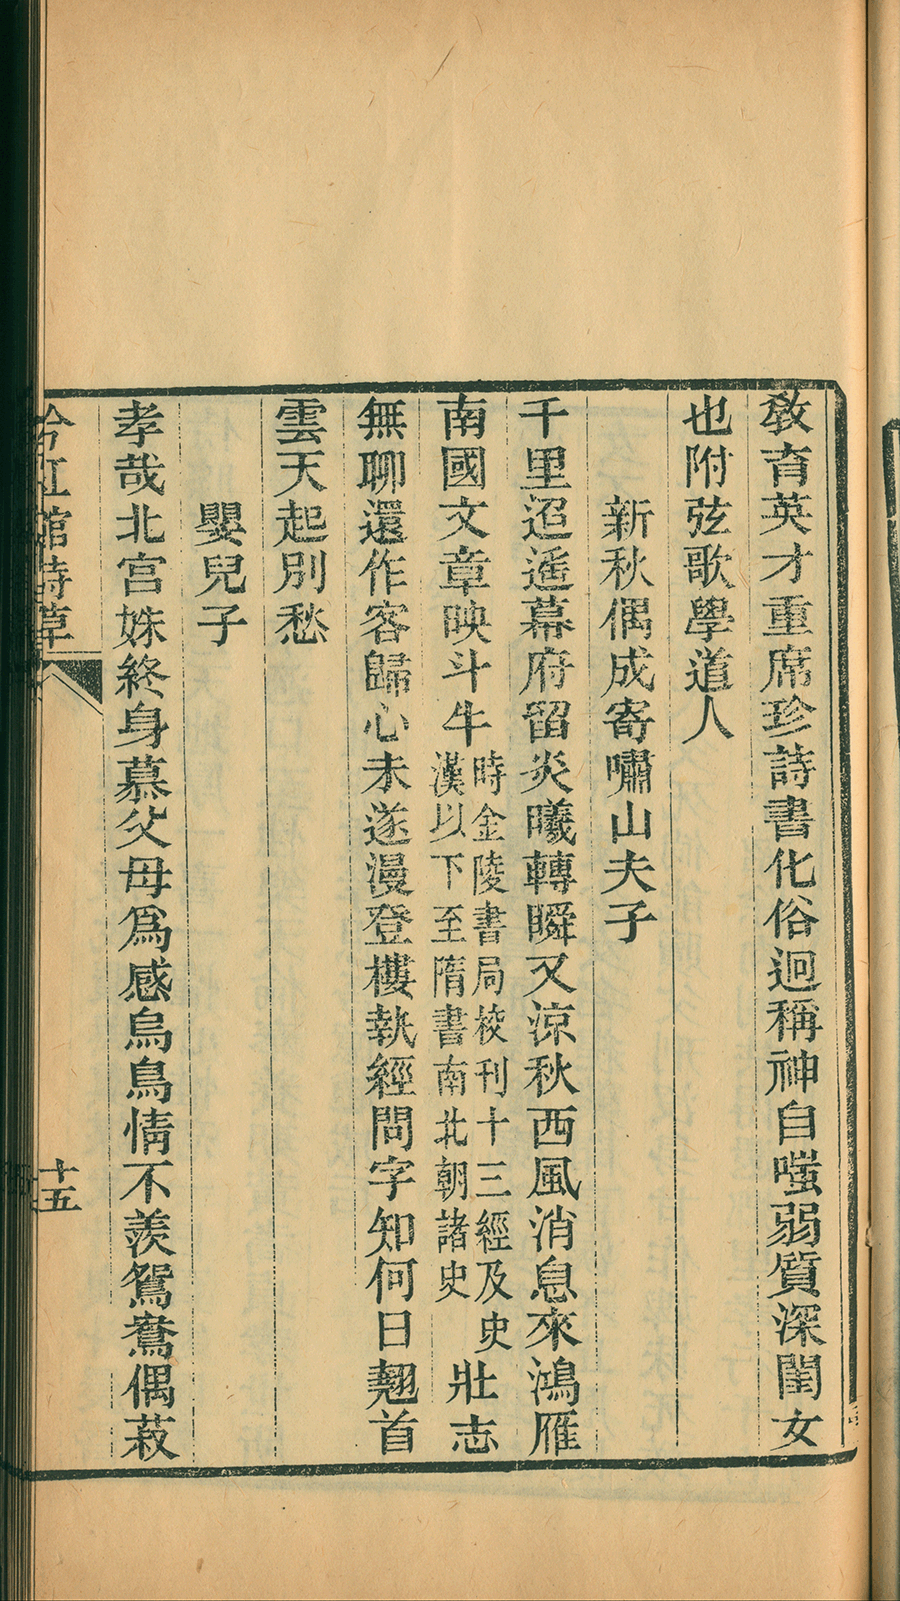 教育英才重席珍詩書化俗迥稱神自嗤弱質深閨女
也附弦歌學道人
新秋偶成寄嘯山夫子
千里迢遙幕府留炎曦轉瞬又涼秋西風消息來鴻雁
南國文章映斗牛時金陵書局校刊十三經及史漢以下至隋書南北朝諸史壯志
無聊還作客歸心未遂漫登樓執經問字知何日翹首
雲天起別愁
嬰兒子
孝哉北宮姝終身慕父母爲感烏鳥情不羨鴛鴦偶菽
館詩草
十五